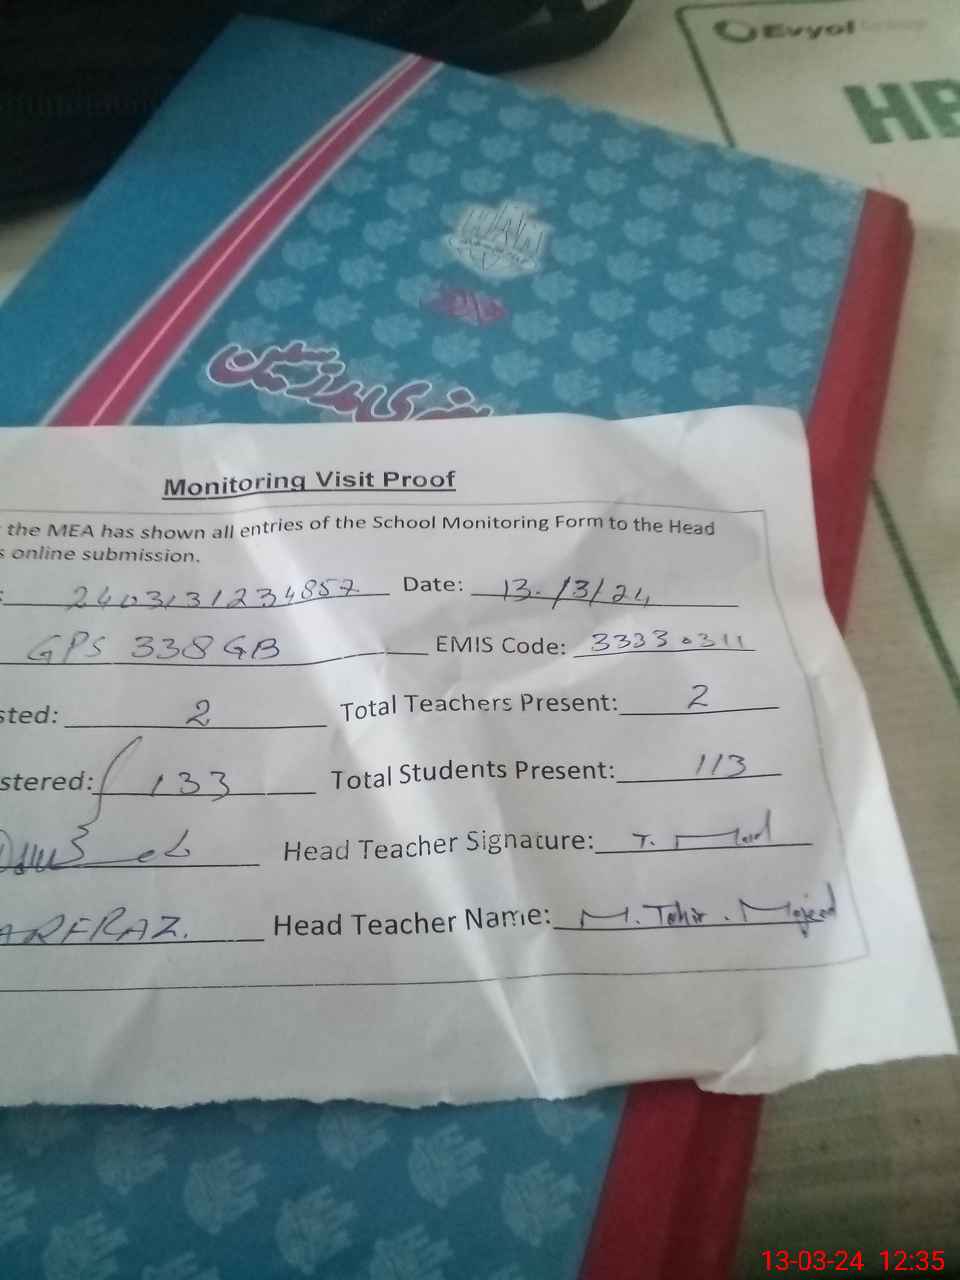 Evyol
HB
Monitoring Visit Proof
the MEA has shown all entries of the School Monitoring Form to the Head
s online submission.
: 2403131234857 Date: 13-/3/24
GPS 338 GB EMIS Code: 33330311
sted: 2 Total Teachers Present: 2
stered: 133 Total Students Present: 113
Head Teacher Signature: T.
ARFRAZ. Head Teacher Name: M. Tahir. Majeed
13-03-24 12:35